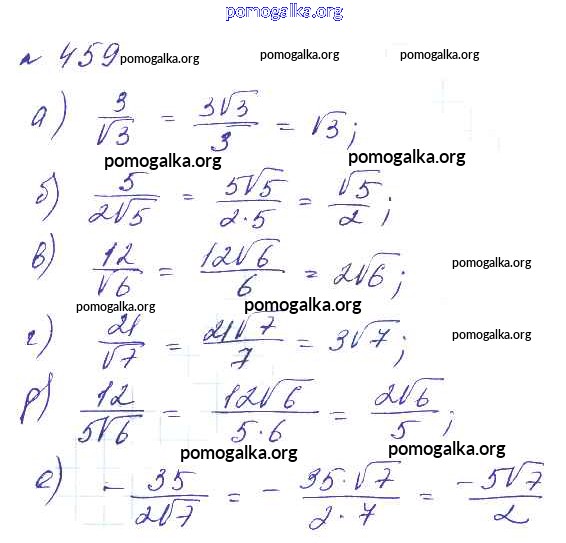 pomogalka.org
№ 459 pomogalka.org pomogalka.org pomogalka.org
а) 3/√3 = 3√3/3 = √3;
pomogalka.org pomogalka.org
б) 5/2√5 = 5√5/2·5 = √5/2;
в) 12/√6 = 12√6/6 = 2√6; pomogalka.org
pomogalka.org pomogalka.org
г) 21/√7 = 21√7/7 = 3√7; pomogalka.org
д) 12/5√6 = 12√6/5·6 = 2√6/5;
pomogalka.org pomogalka.org
е) -35/2√7 = -35·√7/2·7 = -5√7/2